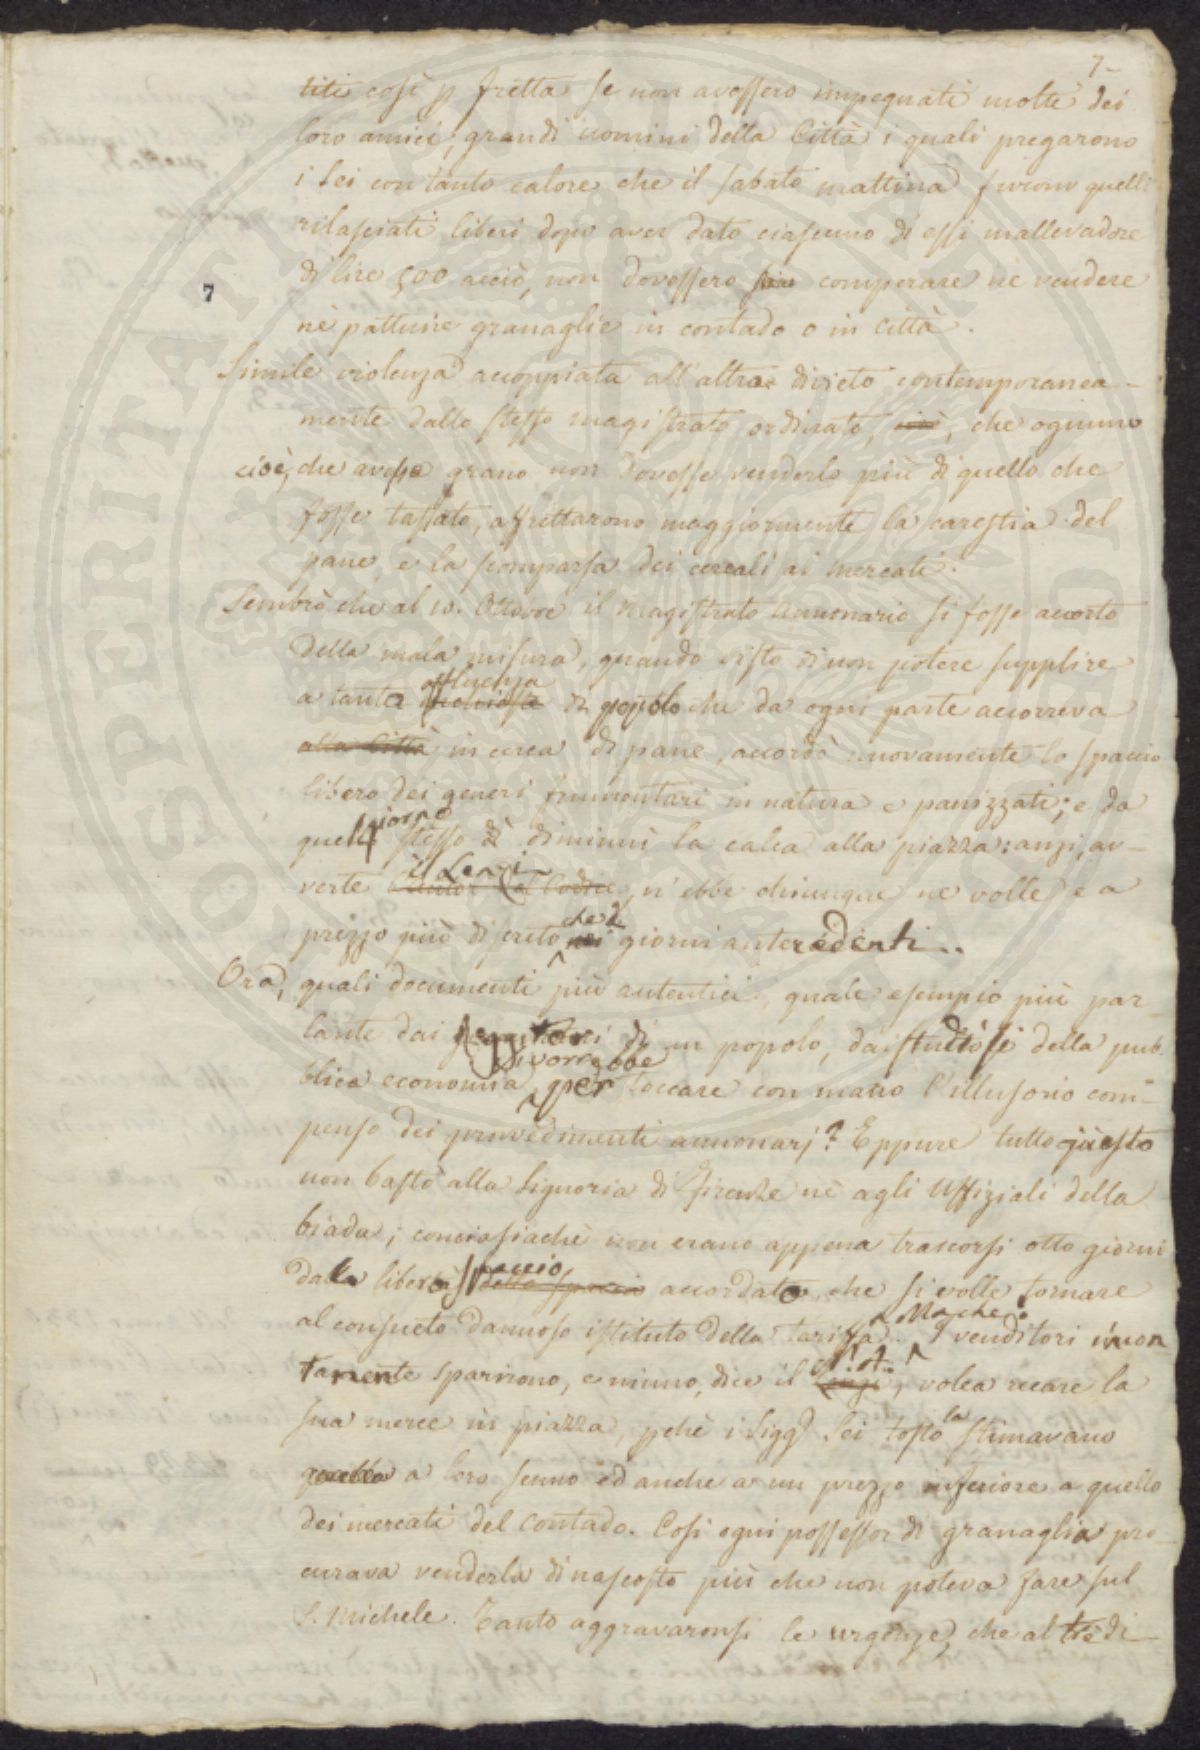 7-
titi così p fretta se non avessero impegnati molti dei
loro amici, grandi uomini della Città i quali pregarono
i Sei con tanto calore che il sabato mattina furono quelli
rilasciati liberi dopo aver dato ciascuno di essi mallevadore
di lire 500 acciò, non dovessero più comperare nè vendere
7
nè pattuire granaglie in contado o in città.
Simile violenza accoppiata all'altro divieto contemporanea-
mente dallo stesso magistrato ordinato, cioè, che ognuno
cioè, che avesse grano non dovesse venderlo più di quello che
fosse tassato, affrettarono maggiormente la carestia del
pane, e la scomparsa dei cereali ai mercati.
Sembrò che al 10. Ottobre il magistrato Annonario si fosse accorto
della mala misura, quando visto di non potere supplire
affluenza
a tanta richiesta di popolo che da ogni parte accorreva
alla Città in cerca di pane, accordò nuovamente lo spaccio
libero dei generi frumentari in natura e panizzati; e da
giorno
quel stesso dì diminuì la calca alla piazza: anzi, av-
il Lenzi
verte l'autor del Codice, n'ebbe chiunque ne volle, e a
che d
prezzo più discreto nei giorni antecedenti.
Ora, quali documenti più autentici, quale esempio più par-
lante dai reggitori di un popolo, da studiosi della pub-
si vorrebbe
blica economia, per toccare con mano l'illusorio com-
penso dei provvedimenti annonarj? Eppure tutto questo
non bastò alla Signoria di Firenze nè agli Uffiziali della
biada; conciosiachè non erano appena trascorsi otto giorni
spaccio
dalla libero dello spaccio accordato, che si volle tornare
al consueto dannoso istituto della tariffa. Ma che i venditori imon
tamente sparirono, e niuno, dice il Lenzi, volea recare la
la
sua merce in piazza, pchè i Sigg Sei tosto stimavano
quella a loro senno ed anche a un prezzo inferiore a quello
dei mercati del contado. Così ogni possessor di granaglia pro
curava venderla di nascosto più che non poteva fare sul
S. Michele. Tanto aggravaronsi le urgenze, che al tre di